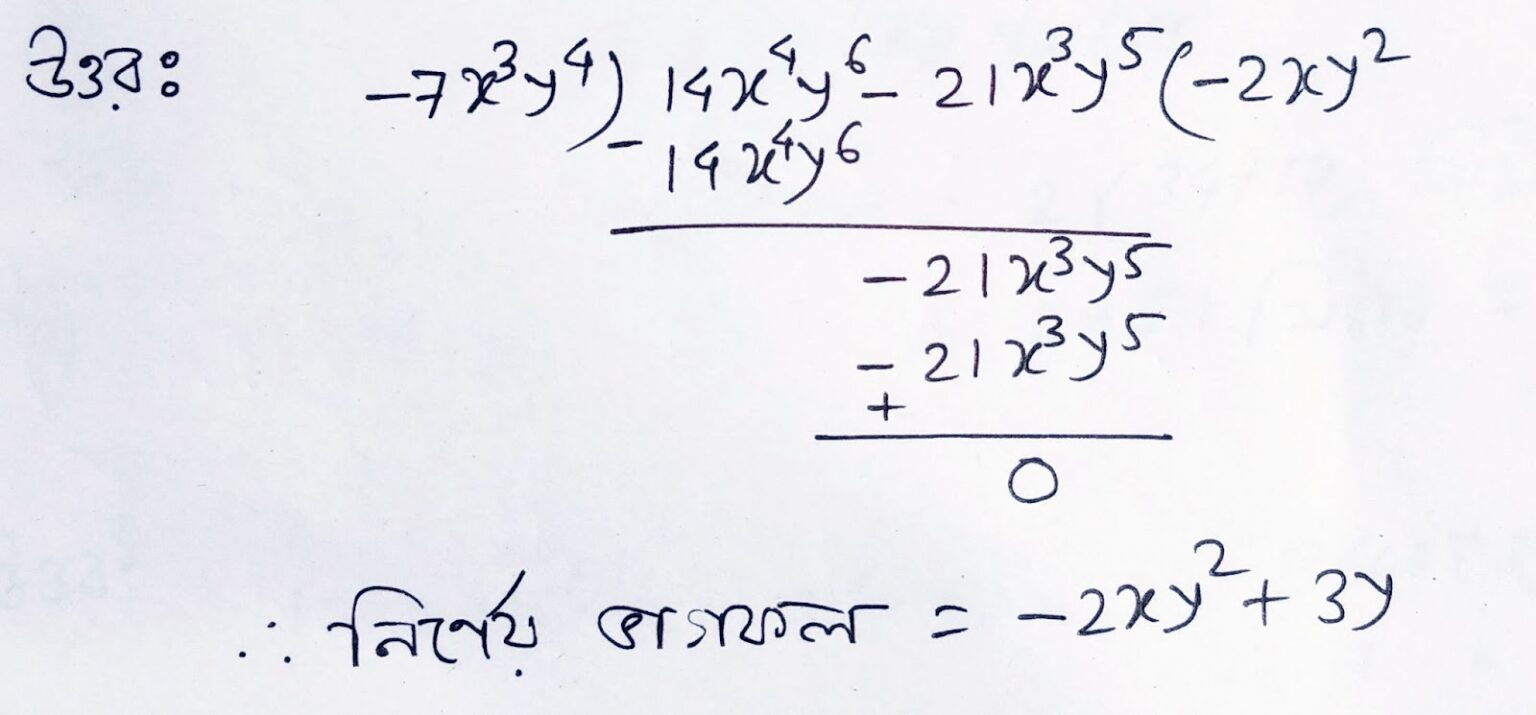 উত্তরঃ -7x³y⁴) 14x⁴y⁶ - 21x³y⁵(-2xy²
- 14x⁴y⁶
- 21x³y⁵
- 21x³y⁵
+
0
∴ নির্ণেয় ভাগফল = -2xy² + 3y